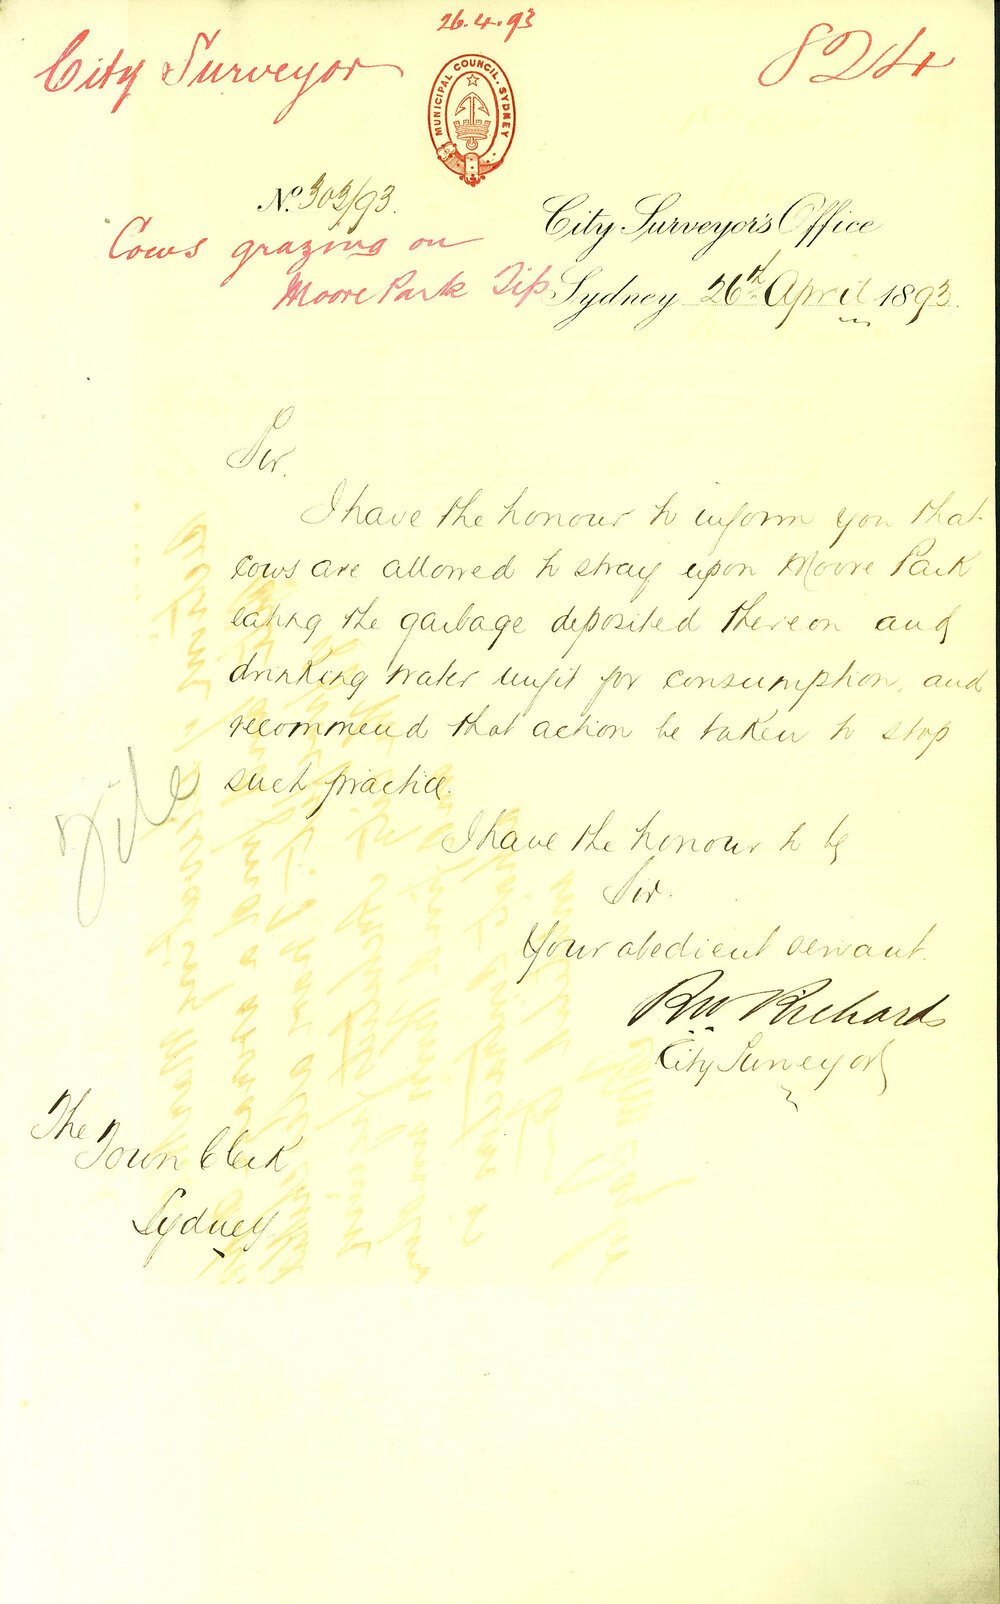 26.4.93
City Surveyor
824
MUNICIPAL COUNCIL. SYDNEY
No. 303/93.
City Surveyor's Office
Cows grazing on
Moore Park Tip
Sydney 26th April 1893.
Sir.
I have the honour to inform you that
cows are allowed to stray upon Moore Park
eating the garbage deposited thereon and
drinking water unfit for consumption, and
recommend that action be taken to stop
such practice.
File
I have the honour to be
Sir.
Your obedient servant.
RW Richards
City Surveyor
The
Town Clerk
Sydney